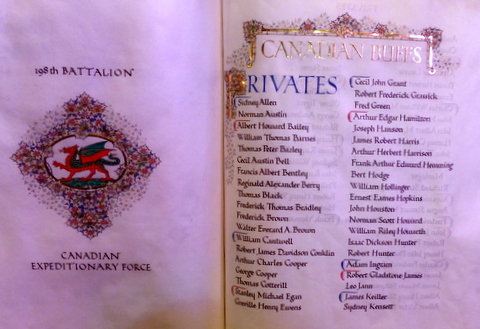 198th BATTALION
CANADIAN
EXPEDITIONARY FORCE
CANADIAN BUFFS
PRIVATES
Sidney Allen
Norman Austin
Albert Howard Bailey
William Thomas Barnes
Thomas Peter Bazley
Cecil Austin Bell
Francis Albert Bentley
Reginald Alexander Berry
Thomas Black
Frederick Thomas Beadley
Frederick Brown
Walter Everard A. Brown
William Cantwell
Robert James Davidson Conklin
Arthur Charles Cooper
George Cooper
Thomas Cotterill
Stanley Michael Egan
Greville Henry Ewens
Cecil John Grant
Robert Frederick
Fred Green
Arthur Edgar Hamilton
Joseph Hanson
James Robert Harris
Arthur Herbert Harrison
Frank Arthur Edward Hemming
Bert Hodge
William Hollinger
Ernest Eames Hopkins
John Houston
Norman Scott Howard
William Riley Howseth
Isaac Dickson Hunter
Robert Hunter
Adam Ingram
Robert Gladstone James
Leo Jann
James Keiller
Sydney Kensett